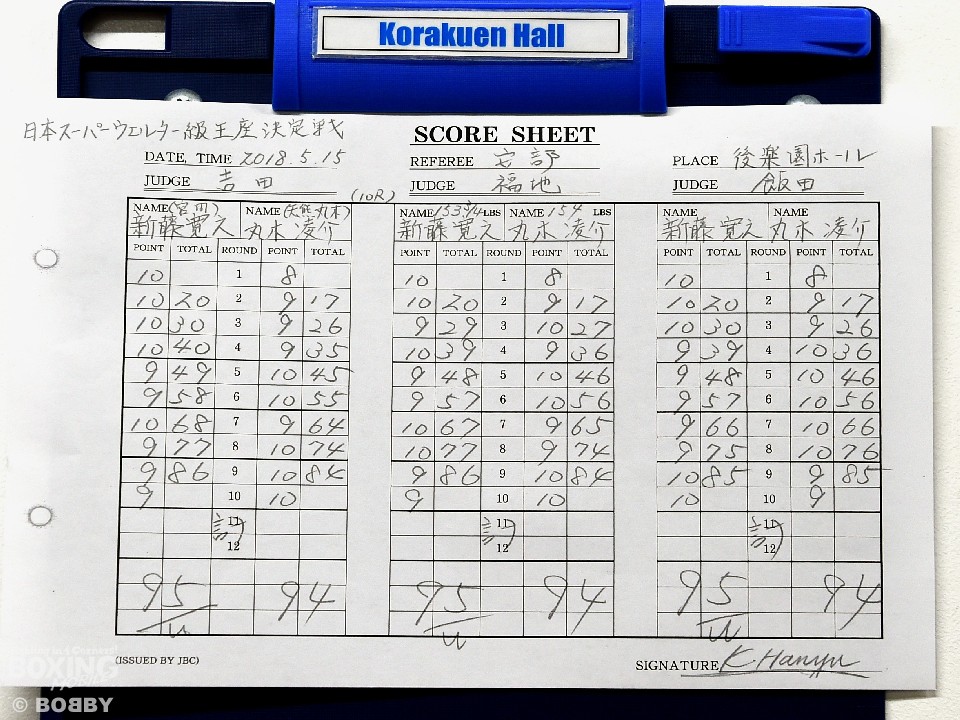 Korakuen Hall
日本スーパーウエルター級王座決定戦
SCORE SHEET
DATE, TIME 2018.5.15 REFEREE 安部 PLACE 後楽園ホール
JUDGE 吉田 JUDGE 福地 JUDGE 飯田
(10R)
NAME(宮田) NAME(天熊丸木) NAME 153 3/4 LBS NAME 154 LBS NAME NAME
新藤寛之 丸木凌介 新藤寛之 丸木凌介 新藤寛之 丸木凌介
POINT TOTAL ROUND POINT TOTAL POINT TOTAL ROUND POINT TOTAL POINT TOTAL ROUND POINT TOTAL
10 1 8 10 1 8 10 1 8
10 20 2 9 17 10 20 2 9 17 10 20 2 9 17
10 30 3 9 26 9 29 3 10 27 10 30 3 9 26
10 40 4 9 35 10 39 4 9 36 9 39 4 10 36
9 49 5 10 45 9 48 5 10 46 9 48 5 10 46
9 58 6 10 55 9 57 6 10 56 9 57 6 10 56
10 68 7 9 64 10 67 7 9 65 9 66 7 10 66
9 77 8 10 74 10 77 8 9 74 9 75 8 10 76
9 86 9 10 84 9 86 9 10 84 10 85 9 9 85
9 10 10 9 10 10 10 10 9
11 11 11
12 12 12
95 94 95 94 95 94
(ISSUED BY JBC) SIGNATURE K Hanyu
BOXING
© BOBBY